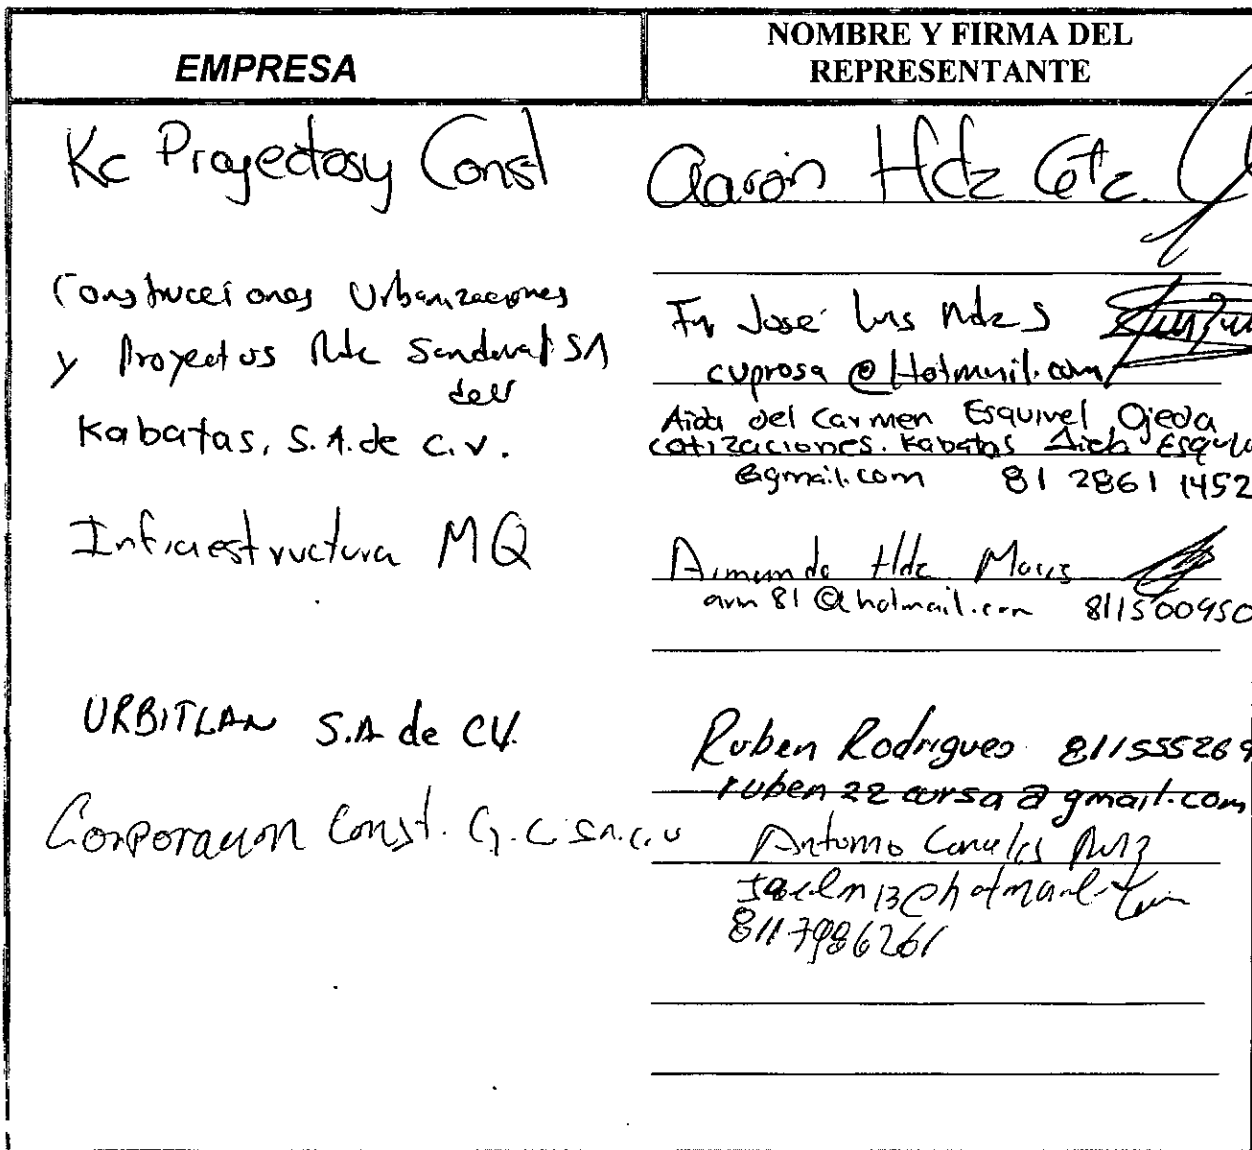 EMPRESA
NOMBRE Y FIRMA DEL
REPRESENTANTE
Kc Proyectos y Const
Aaron Hdz Gtz.
Construcciones Urbanizaciones
y Proyectos Rdz Sandoval SA
de CV
José Luis Rdz S
cuprosa@Hotmail.com
Kabatas, S.A. de C.V.
Aida del Carmen Esquivel Ojeda
cotizaciones.kabatas Aida Esquiv
@gmail.com 81 2861 1452
Infraestructura MQ
Armando Hdz
arm81@hotmail.com 811500950
URBITLAN S.A de CV.
Ruben Rodrigues 811555269
ruben22cursa@gmail.com
Corporacion Const. G.C SA.C.V
Antonio Canales Ruiz
8117986261